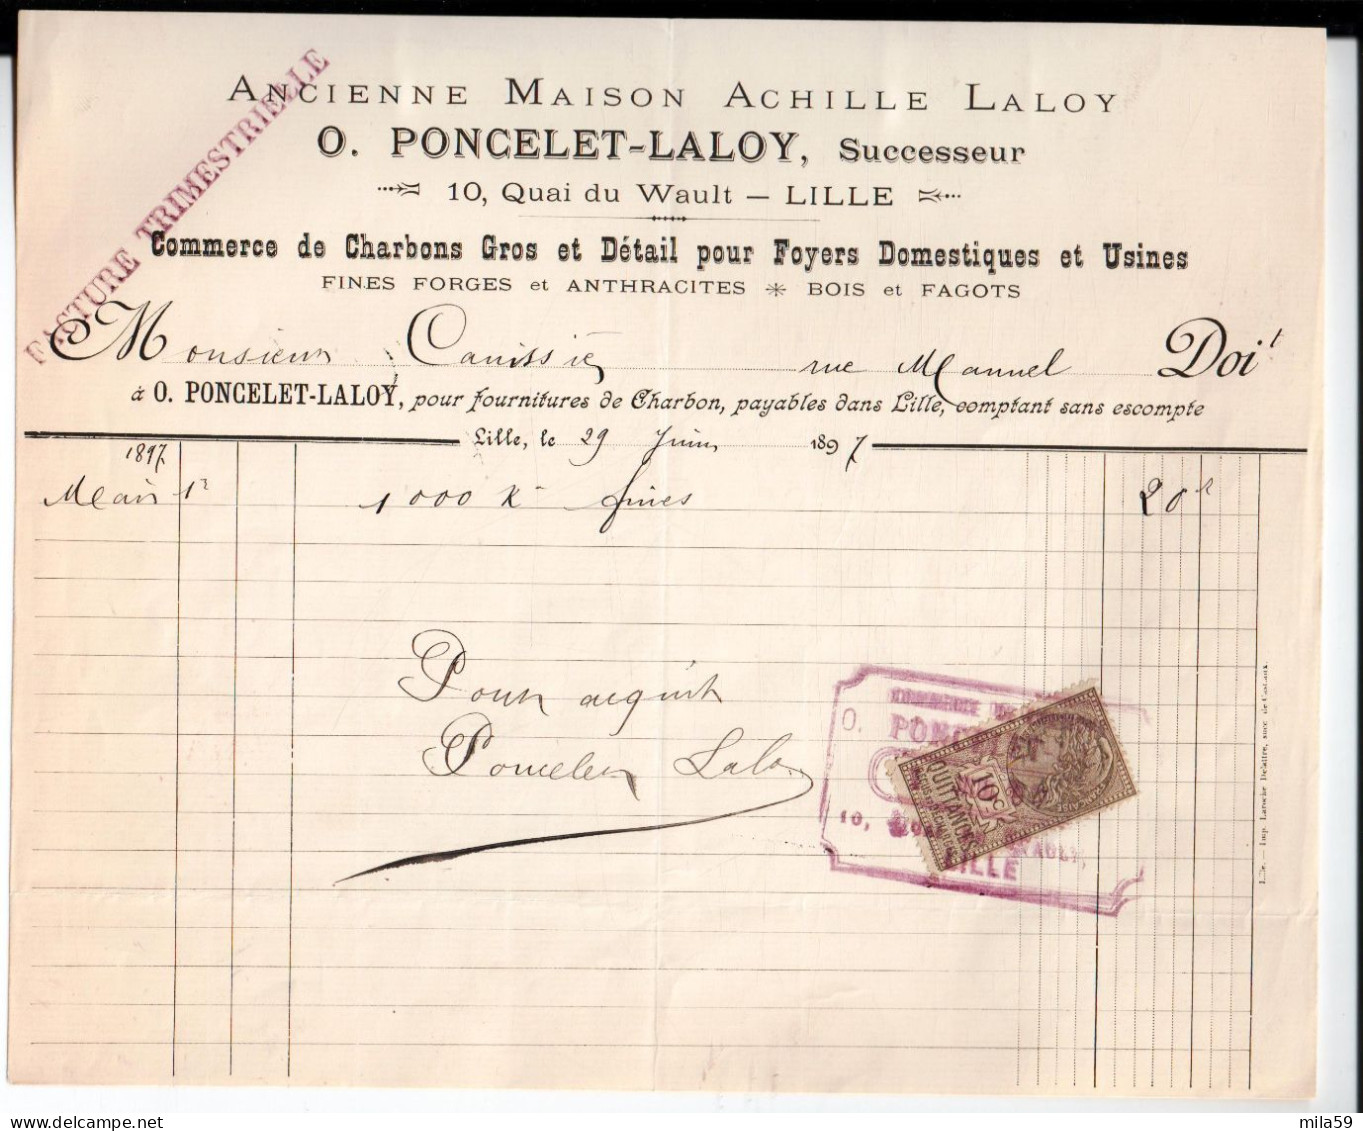 FACTURE TRIMESTRIELLE
ANCIENNE MAISON ACHILLE LALOY
O. PONCELET-LALOY, Successeur
10, Quai du Wault — LILLE
Commerce de Charbons Gros et Détail pour Foyers Domestiques et Usines
FINES FORGES et ANTHRACITES * BOIS et FAGOTS
Monsieur rue Manuel Doit
à O. PONCELET-LALOY, pour fournitures de Charbon, payables dans Lille, comptant sans escompte
Lille, le 29 Juin 1897
1897
1000 K fines 20
Pour acquit
Poncelet Laloy
COMMERCE DE
O. PONCELET
10,
LILLE
10c
QUITTANCES
Lille. — Imp. Laroche Delattre, succ. de Castiaux.
delcampe.net
mila59